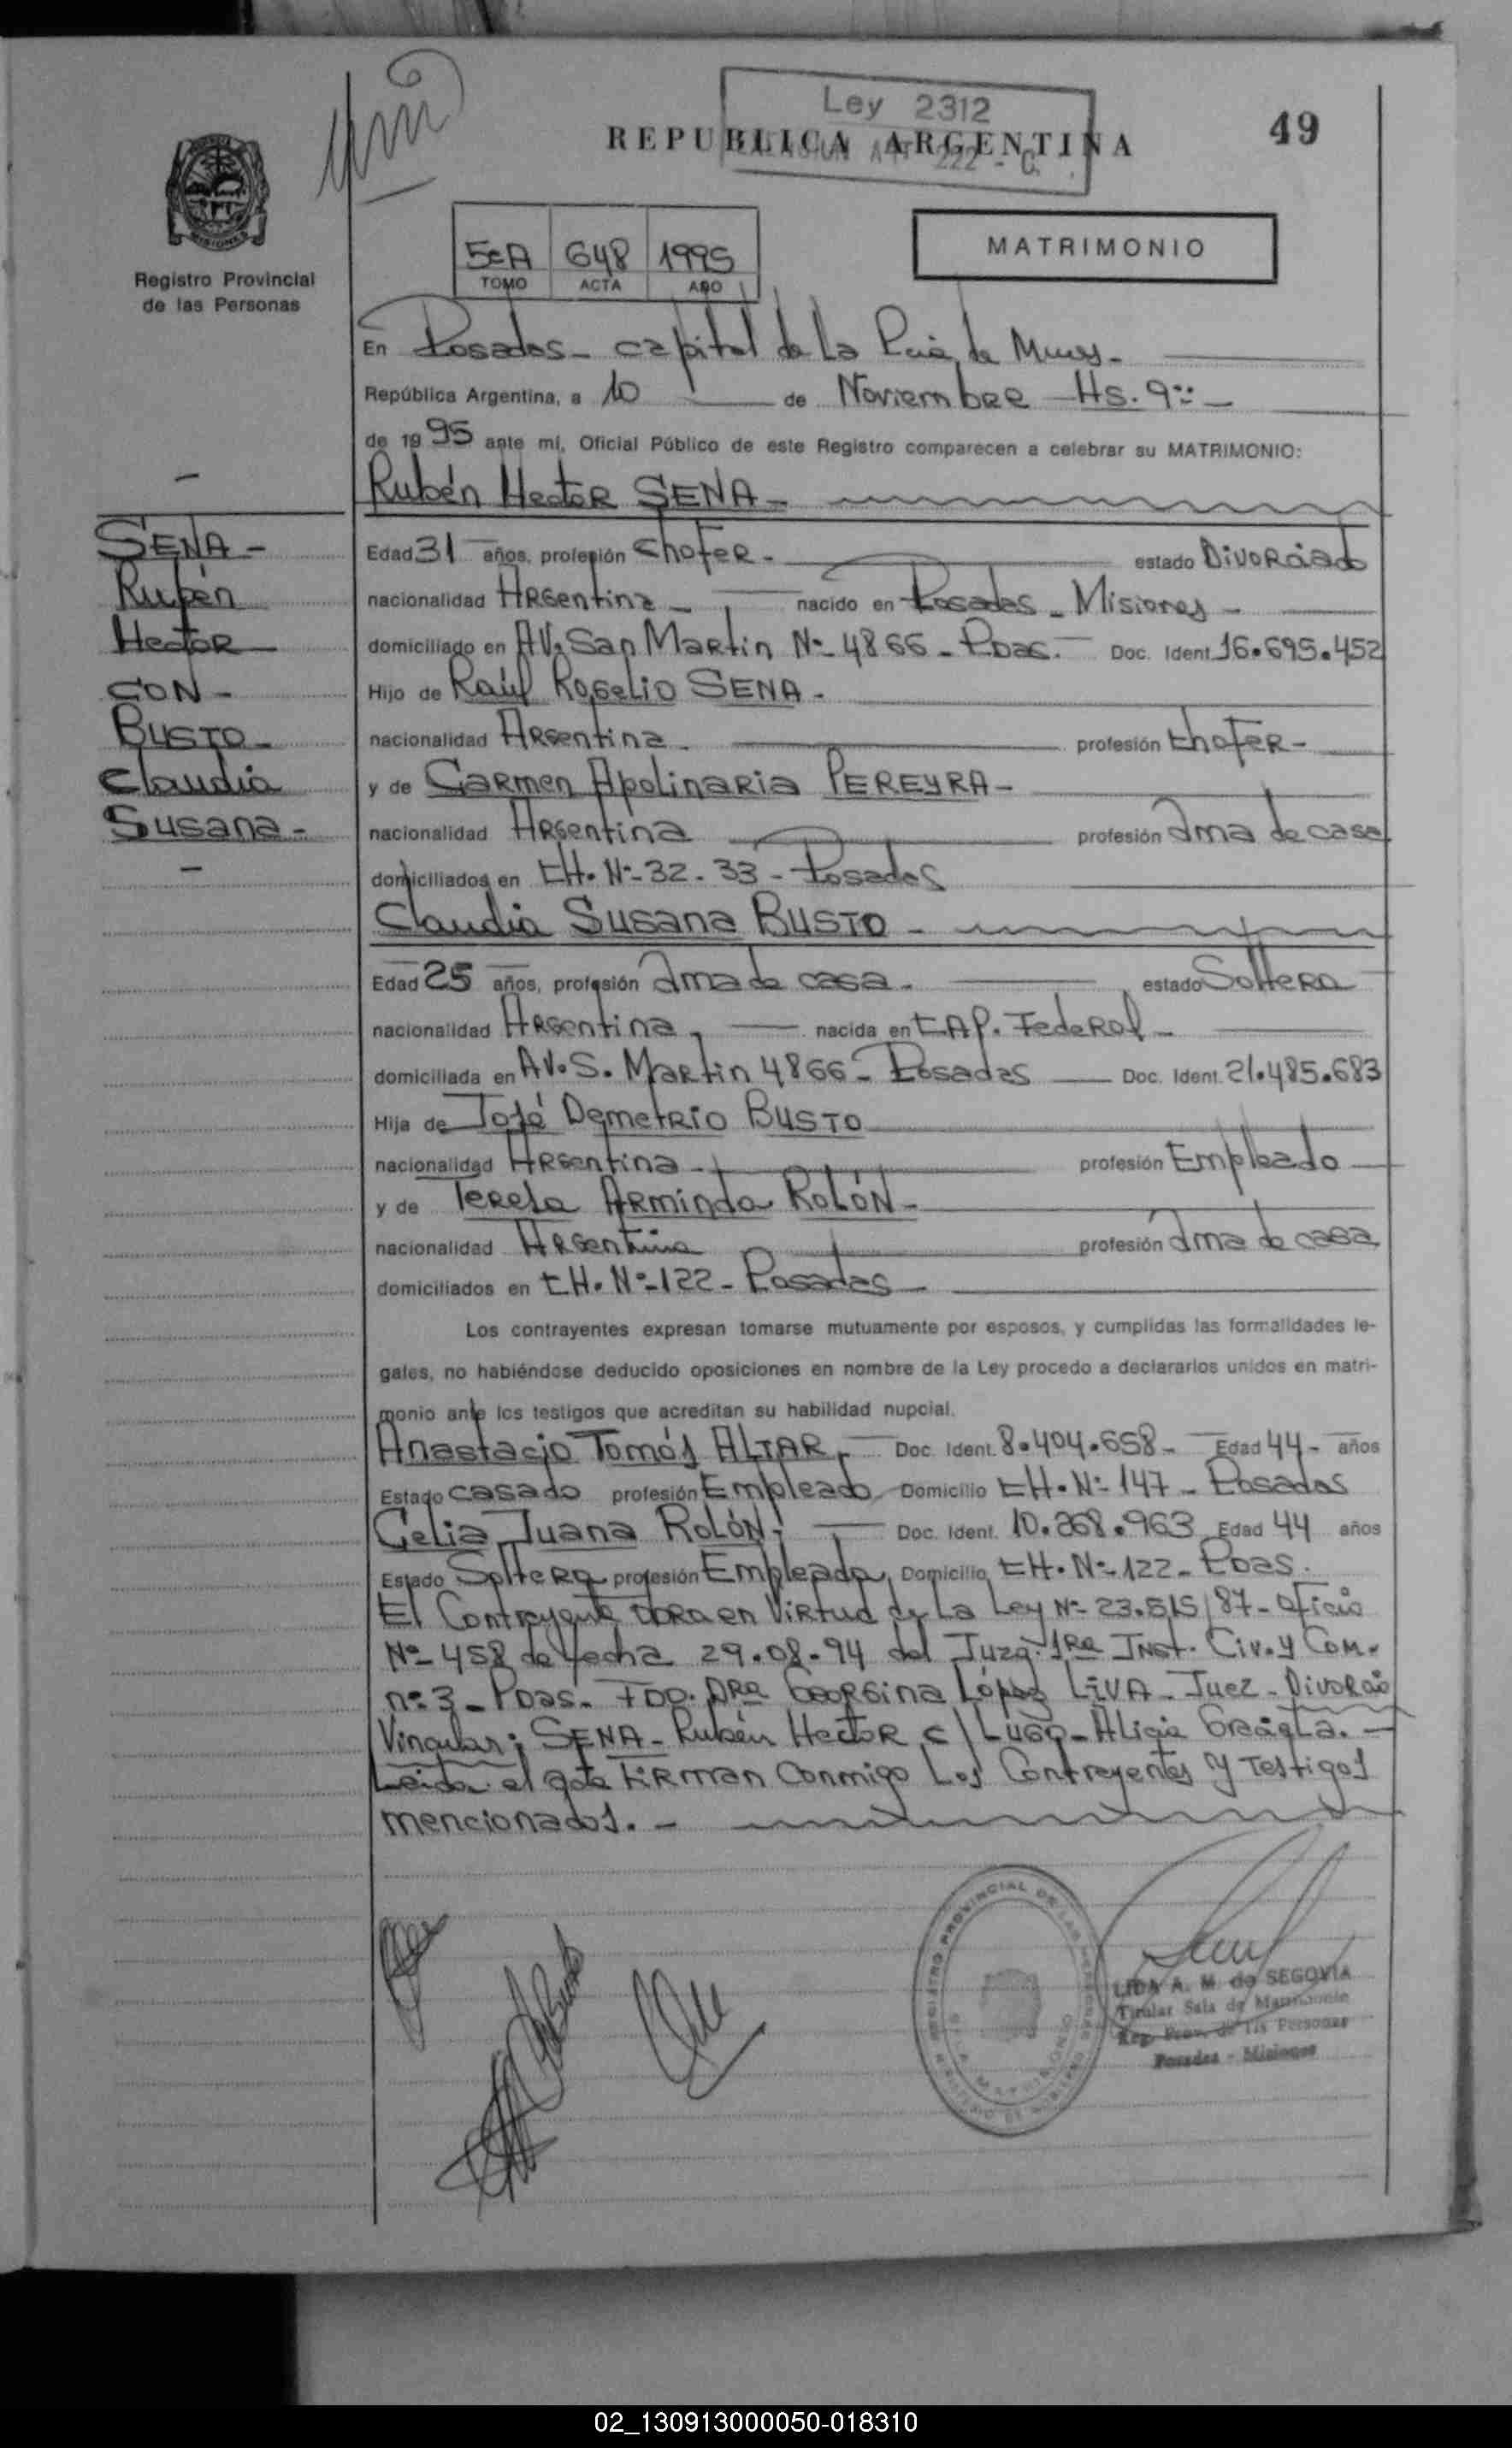 Ley 2312
REPUBLICA ARGENTINA
222 - C.
49
MISIONES
Registro Provincial
de las Personas
MATRIMONIO
5ºA 648 1995
TOMO ACTA AÑO
En Posadas - capital de La Pcia. de Mnes -
República Argentina, a 10 de Noviembre Hs. 9
de 1995 ante mí, Oficial Público de este Registro comparecen a celebrar su MATRIMONIO:
Rubén Hector SENA -
SENA -
Rubén
Hector
CON -
BUSTO -
Claudia
Susana -
Edad 31 años, profesión Chofer - estado Divorciado
nacionalidad Argentina - nacido en Posadas - Misiones -
domiciliado en AV. San Martin Nº 4866 - Pdas. Doc. Ident. 16.695.452
Hijo de Raúl Rogelio SENA -
nacionalidad Argentina - profesión Chofer -
y de Carmen Apolinaria PEREYRA -
nacionalidad Argentina profesión Ama de casa
domiciliados en CH. Nº 32 - 33 - Posadas
Claudia Susana BUSTO -
Edad 25 años, profesión Ama de casa - estado Soltera
nacionalidad Argentina - nacida en CAP. Federal -
domiciliada en AV. S. Martin 4866 - Posadas Doc. Ident. 21.485.683
Hija de José Demetrio BUSTO
nacionalidad Argentina - profesión Empleado
y de Teresa Arminda ROLÓN -
nacionalidad Argentina profesión Ama de casa
domiciliados en CH. Nº 122 - Posadas
Los contrayentes expresan tomarse mutuamente por esposos, y cumplidas las formalidades le-
gales, no habiéndose deducido oposiciones en nombre de la Ley procedo a declararlos unidos en matri-
monio ante los testigos que acreditan su habilidad nupcial.
Anastacio Tomás ALTAR - Doc. Ident. 8.404.658 - Edad 44 - años
Estado casado profesión Empleado Domicilio CH. Nº 147 - Posadas
Celia Juana ROLÓN - Doc. Ident. 10.268.963 Edad 44 años
Estado Soltera profesión Empleada Domicilio CH. Nº 122 - Pdas.
El Contrayente en Virtud de La Ley Nº 23.515/87 - Oficio
Nº 458 de fecha 29.08.94 del Juzg. 1ra Inst. Civ. y Com.
nº 3 - Pdas. FDO. DRA Georgina López LIVA - Juez - Divorcio
Vincular: SENA - Rubén Hector c/ LUGO - Alicia Graciela. -
Leída el acta firman conmigo Los Contrayentes y Testigos
mencionados. -
REGISTRO PROVINCIAL DE LAS PERSONAS
LIDA A. M. de SEGOVIA
Titular Sala de Matrimonio
Reg. Prov. de las Personas
Posadas - Misiones
02_130913000050-018310